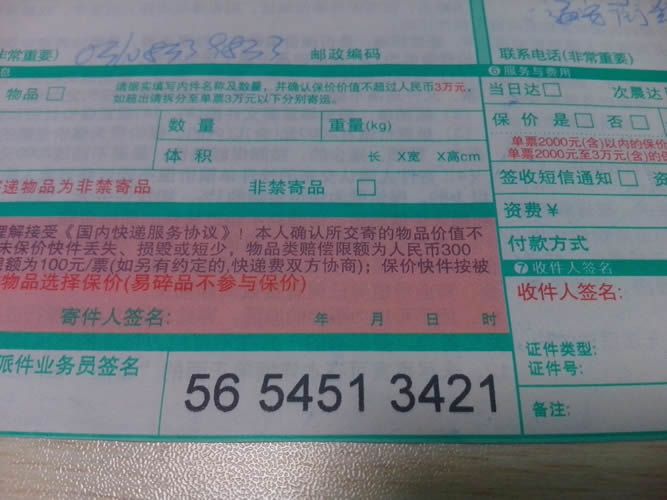 非常重要)
邮政编码
联系电话(非常重要)
物品□
请据实填写内件名称及数量，并确认保价价值不超过人民币3万元，
如超出请拆分至单票3万元以下分别寄运。
⑥服务与费用
当日达□ 次晨达
数量 重量(kg)
保价 是□ 否□
单票2000元(含)以内的保价
单票2000元至3万元(含)的
体积 长 X宽 X高cm
递物品为非禁寄品 非禁寄品 □
签收短信通知 □
资费¥
理解接受《国内快递服务协议》！本人确认所交寄的物品价值不
未保价快件丢失、损毁或短少，物品类赔偿限额为人民币300
限额为100元/票(如另有约定的,快递费双方协商)；保价快件按被
物品选择保价(易碎品不参与保价)
付款方式
⑦收件人签名
收件人签名:
寄件人签名: 年 月 日 时
证件类型:
证件号:
派件业务员签名
56 5451 3421
备注: